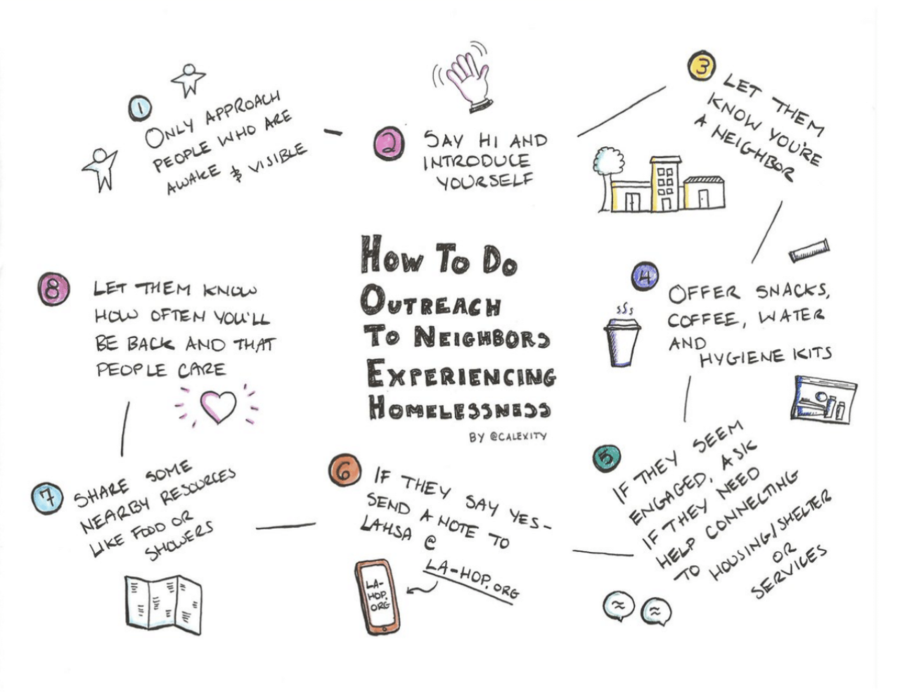 How To Do
OUTREACH
TO NEIGHBORS
EXPERIENCING
HOMELESSNESS
BY @CALEXITY
1
ONLY APPROACH
PEOPLE WHO ARE
AWAKE & VISIBLE
2
SAY HI AND
INTRODUCE
YOURSELF
3
LET THEM
KNOW YOU'RE
A NEIGHBOR
4
OFFER SNACKS,
COFFEE, WATER
AND
HYGIENE KITS
5
IF THEY SEEM
ENGAGED, ASK
IF THEY NEED
HELP CONNECTING
TO HOUSING/SHELTER
OR
SERVICES
6
IF THEY SAY YES-
SEND A NOTE TO
LAHSA @
LA-HOP.ORG
LA-
HOP.
ORG
7
SHARE SOME
NEARBY RESOURCES
LIKE FOOD OR
SHOWERS
8
LET THEM KNOW
HOW OFTEN YOU'LL
BE BACK AND THAT
PEOPLE CARE